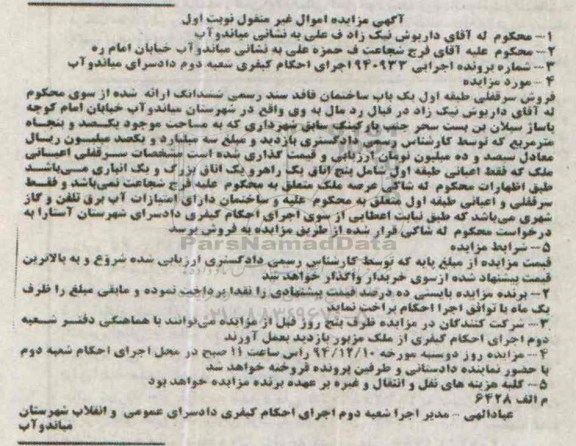 آگهی مزایده اموال غیر منقول نوبت اول
۱- محکوم له آقای داریوش نیک زاد ف علی به نشانی میاندوآب
۲- محکوم علیه آقای فرج شجاعت ف حمزه علی به نشانی میاندوآب خیابان امام ره
۳- شماره پرونده اجرایی ۹۴۰۹۳۳ اجرای احکام کیفری شعبه دوم دادسرای میاندوآب
۴- مورد مزایده
فروش سرقفلی طبقه اول یک باب ساختمان فاقد سند رسمی ششدانگ ارائه شده از سوی محکوم
له آقای داریوش نیک زاد در قبال رد مال به وی واقع در شهرستان میاندوآب خیابان امام کوچه
پاساژ سیلان بن بست سحر جنب پارکینگ سابق شهرداری که به مساحت موجود یکصد و پنجاه
مترمربع که توسط کارشناس رسمی دادگستری بازدید و مبلغ سه میلیارد و یکصد میلیون ریال
معادل سیصد و ده میلیون تومان ارزیابی و قیمت گذاری شده است مشخصات سرقفلی اعیانی
ملک که فقط اعیانی طبقه اول شامل پنج اتاق یک راهرو یک اتاق بزرگ و یک انباری می‌باشد
طبق اظهارات محکوم له شاکی عرصه ملک متعلق به محکوم علیه فرج شجاعت نمی‌باشد و فقط
سرقفلی و اعیانی طبقه اول متعلق به محکوم علیه و ساختمان دارای امتیازات آب برق تلفن و گاز
شهری می‌باشد که طبق نیابت اعطایی از سوی اجرای احکام کیفری دادسرای شهرستان آستارا به
درخواست محکوم له شاکی قرار شده از طریق مزایده به فروش برسد
ParsNamadData
۵- شرایط مزایده
قیمت مزایده از مبلغ پایه که توسط کارشناس رسمی دادگستری ارزیابی شده شروع و به بالاترین
قیمت پیشنهاد شده از سوی خریدار واگذار خواهد شد
۲- برنده مزایده بایستی ده درصد قیمت پیشنهادی را نقدا پرداخت نموده و مابقی مبلغ را ظرف
یک ماه با توافق اجرا احکام پراخت نماید
۳- شرکت کنندگان در مزایده ظرف پنج روز قبل از مزایده می‌توانند با هماهنگی دفتر شعبه
دوم اجرای احکام کیفری از ملک مزبور بازدید بعمل آورند
۴- مزایده روز دوشنبه مورخه ۹۴/۱۲/۱۰ راس ساعت ۱۱ صبح در محل اجرای احکام شعبه دوم
با حضور نماینده دادستانی و طرفین پرونده فروخته خواهد شد
۵- کلیه هزینه های نقل و انتقال و غیره بر عهده برنده مزایده خواهد بود
م الف ۶۴۲۸
عبادالهی - مدیر اجرا شعبه دوم اجرای احکام کیفری دادسرای عمومی و انقلاب شهرستان
میاندوآب